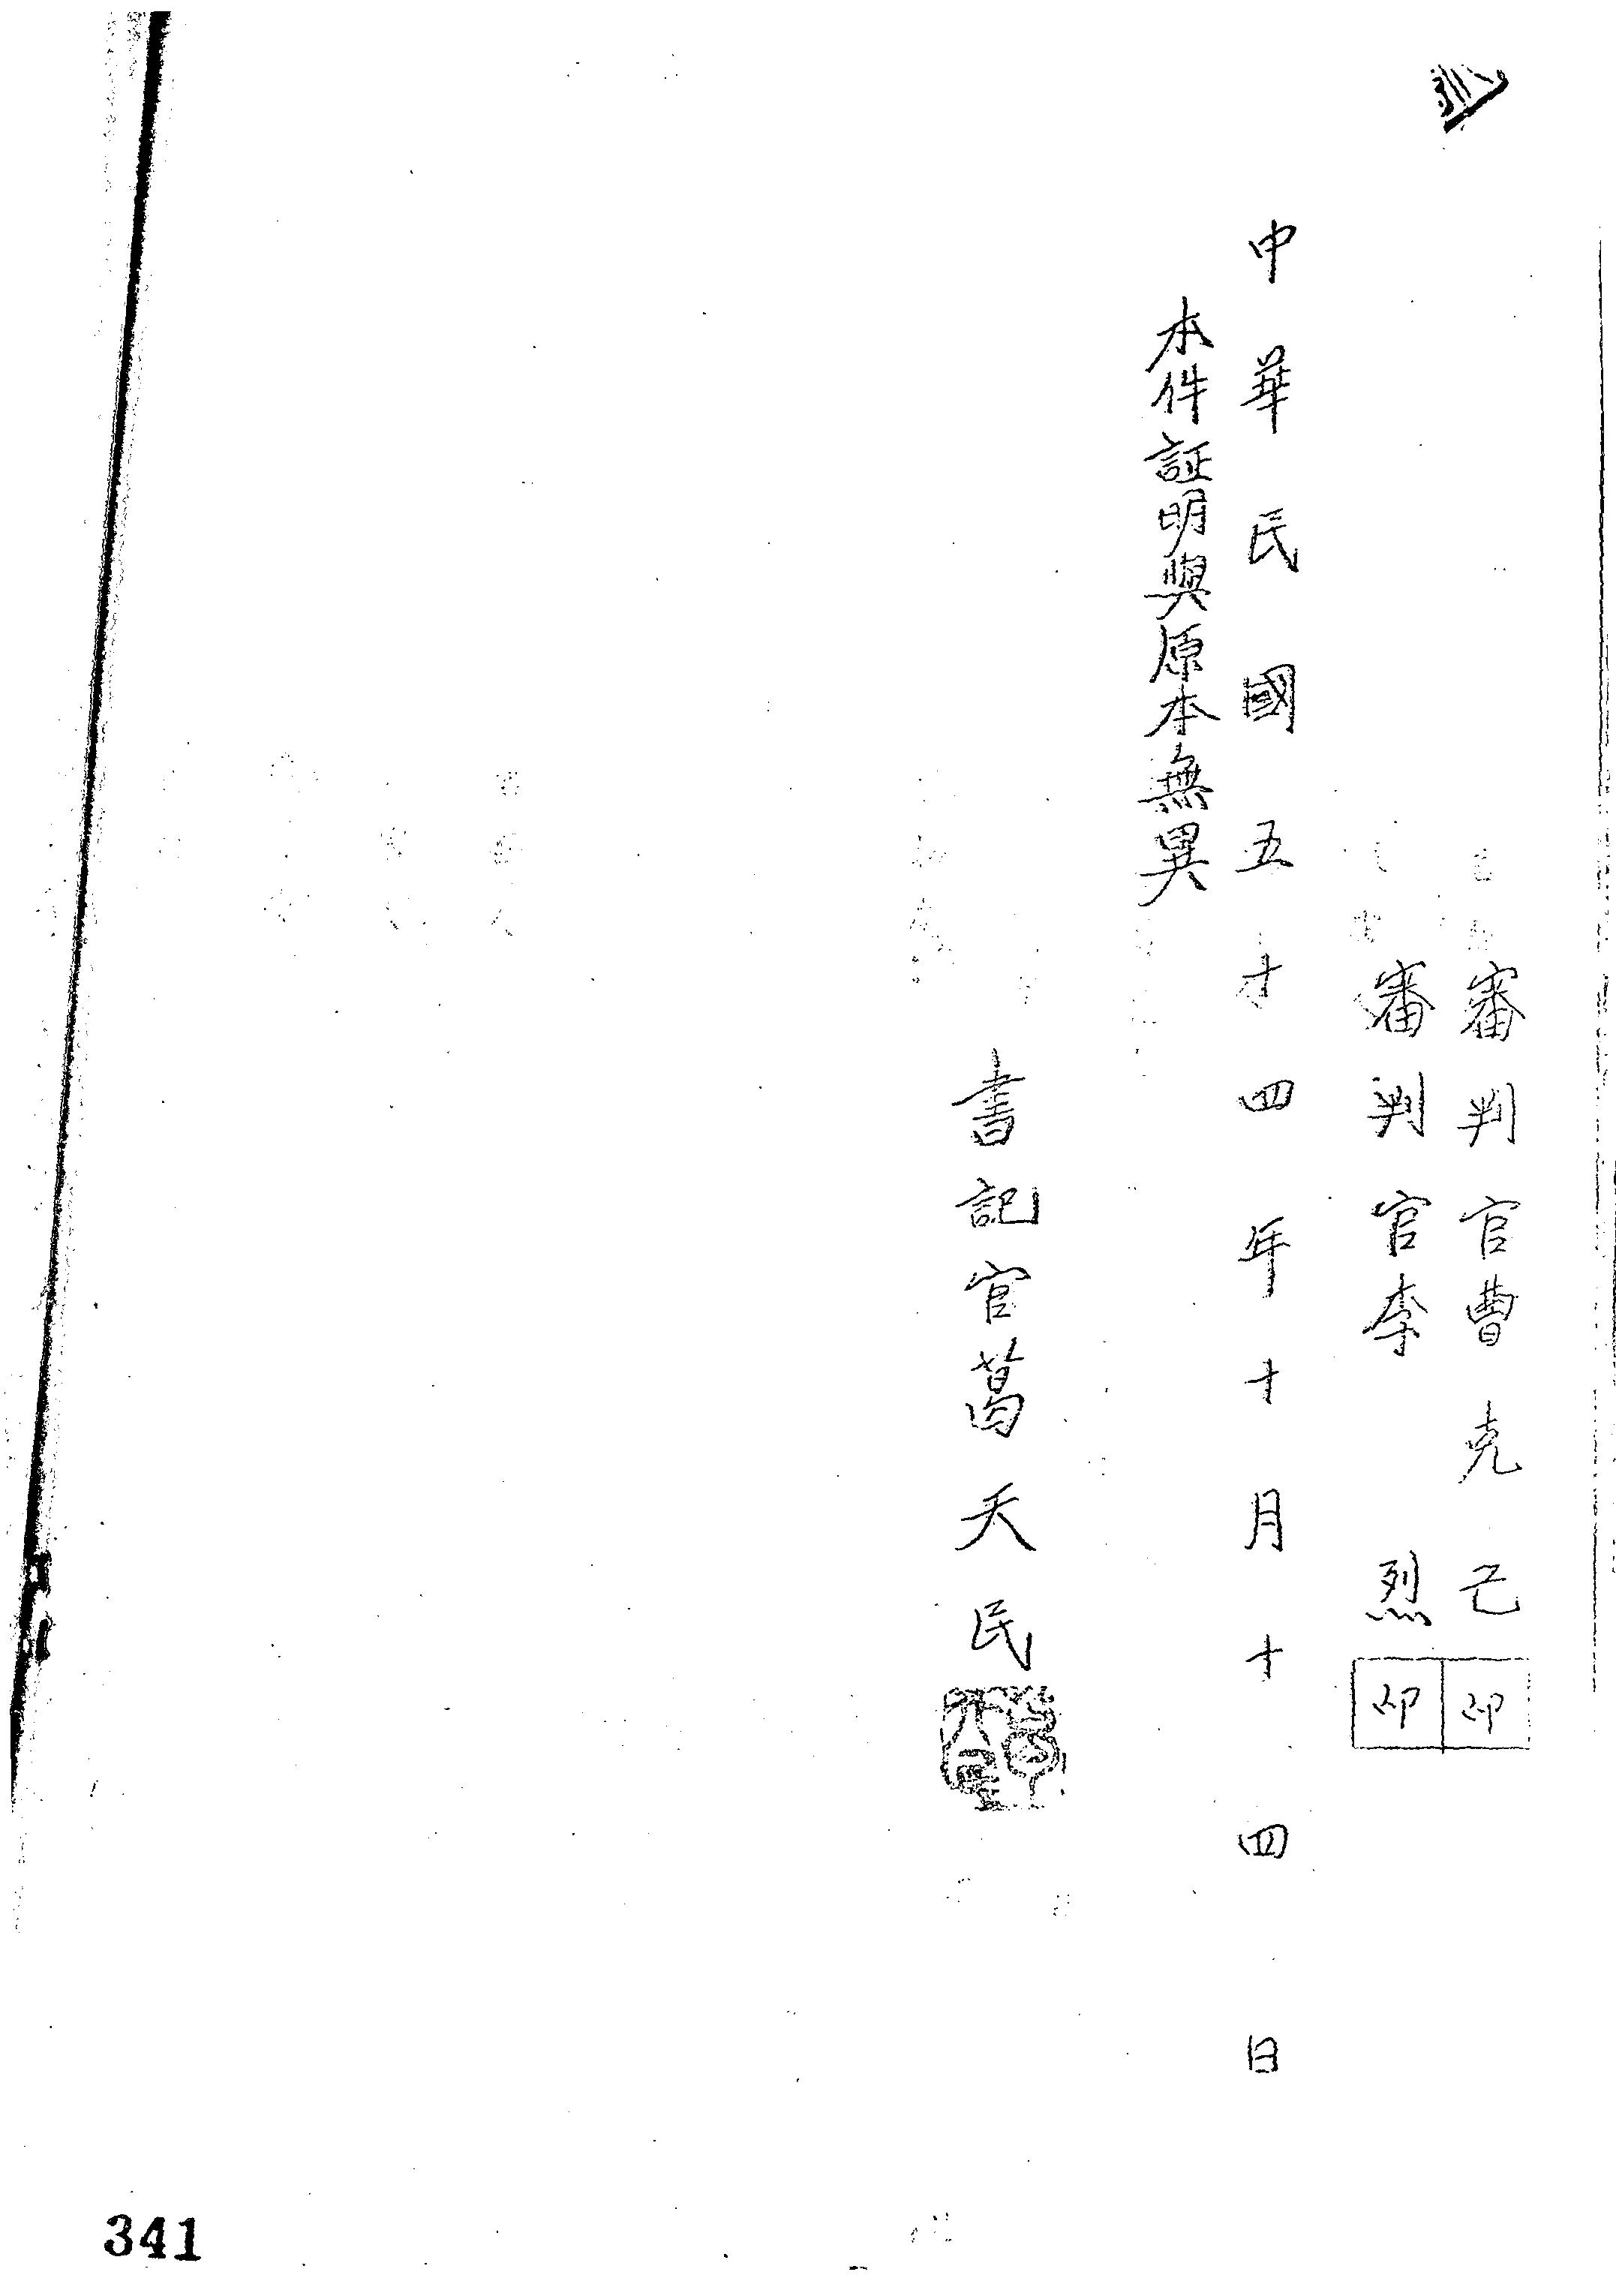 審判官曹克己印
審判官李烈印
中華民國五十四年十月十四日
本件証明與原本無異
書記官葛天民
341